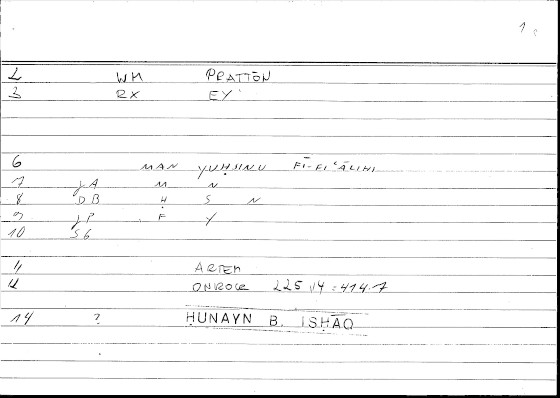 1
2 WM PRATTŌN
3 RX EY
6 MAN YUḤSINU FĪ-FIʿĀLIHI
7 JA M N
8 DB Ḥ S N
9 JP F Y
10 SG
11 ARTEM
12 ONROCR 225 14 = 414.7
14 ? ḤUNAYN B. ISḤĀQ